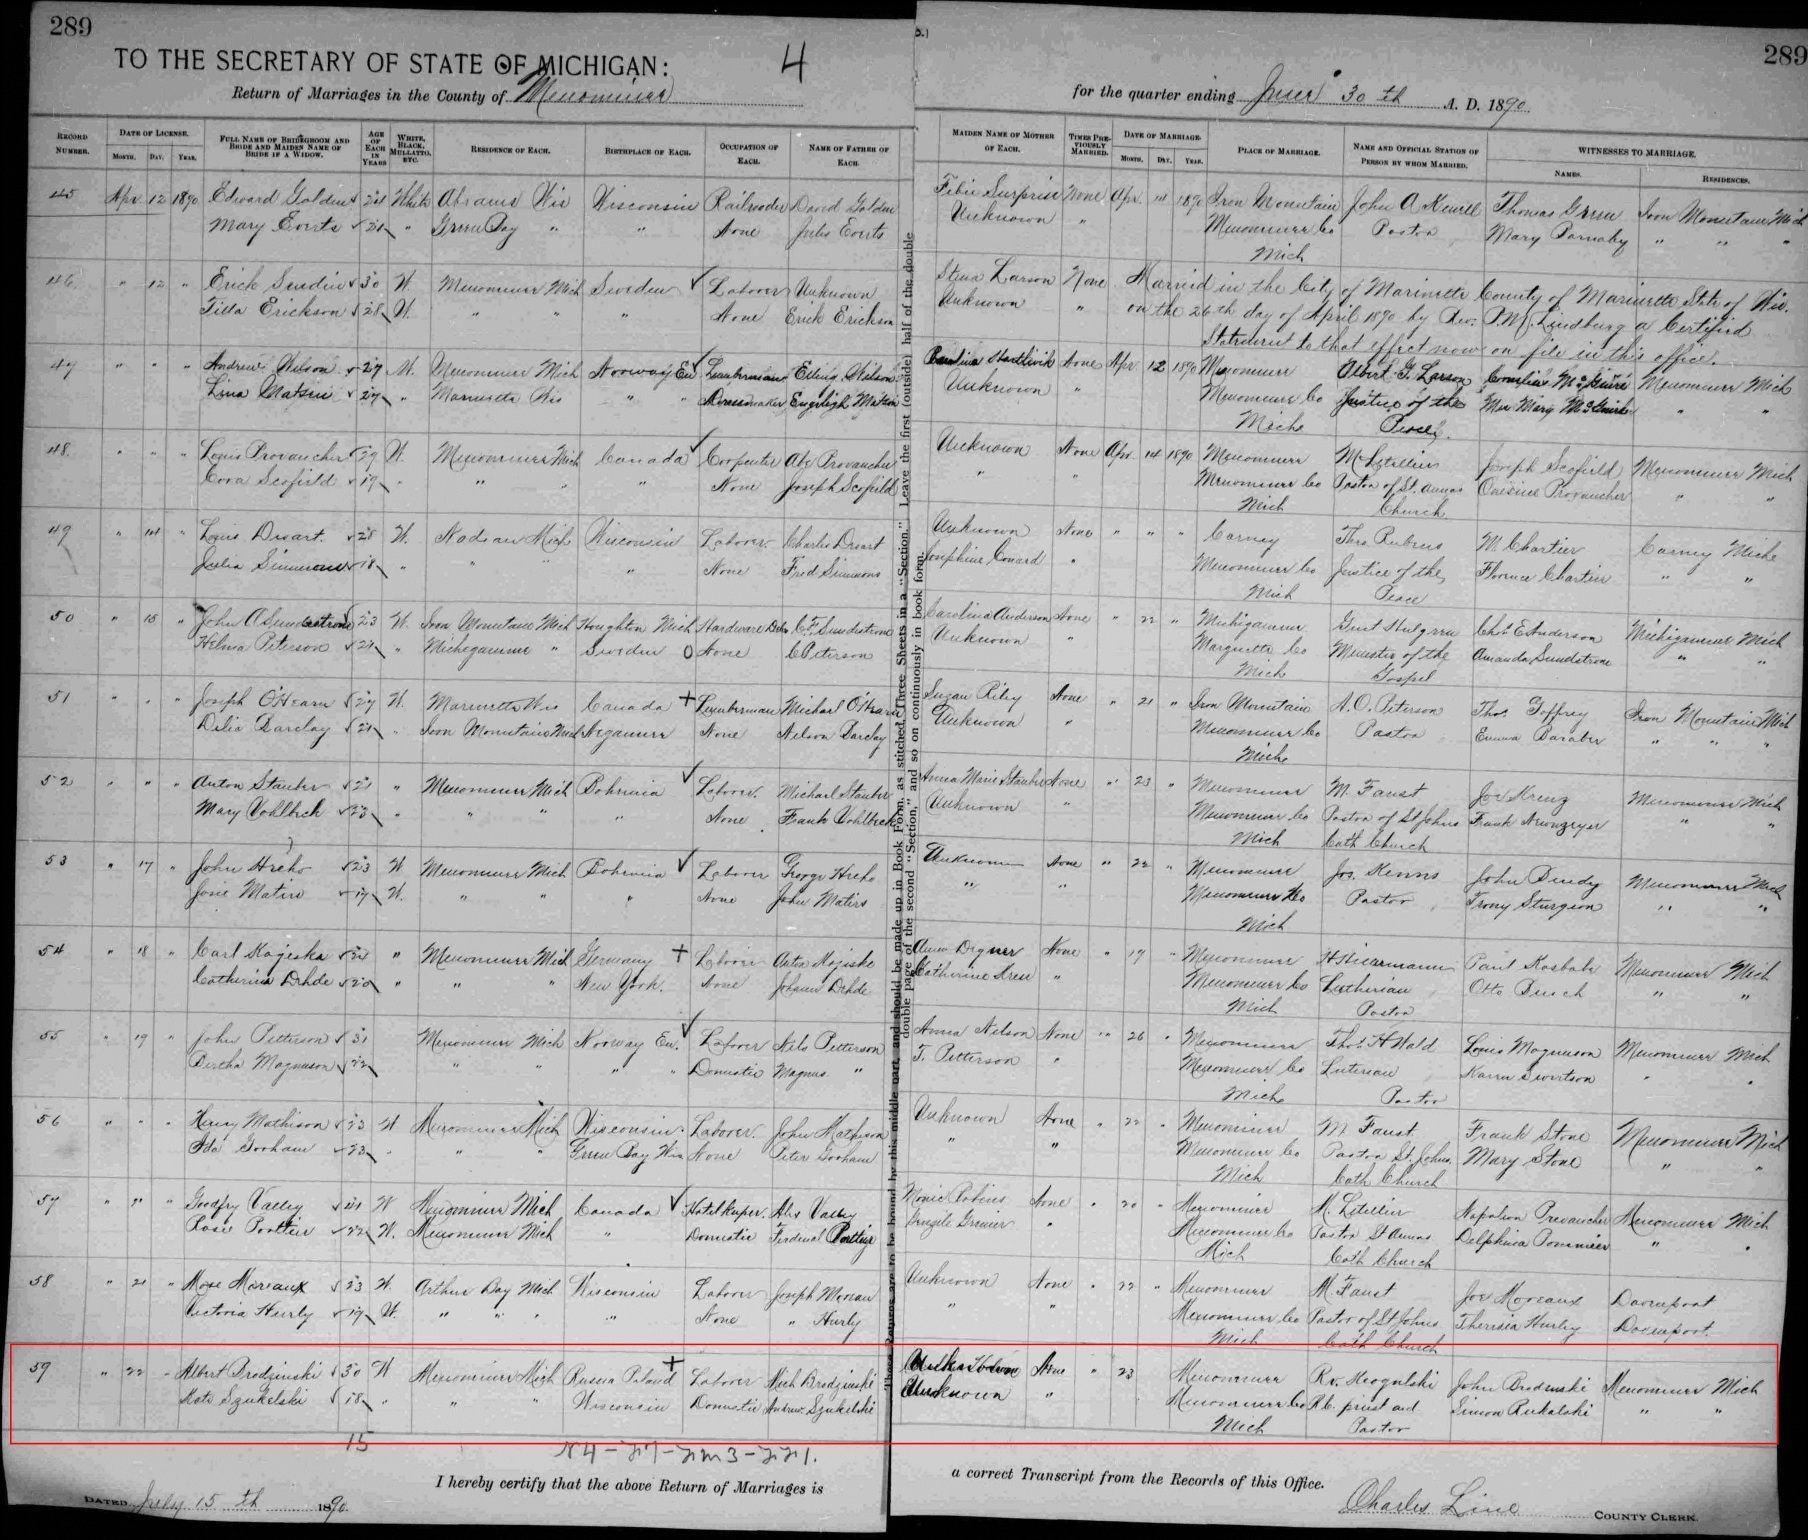 289
TO THE SECRETARY OF STATE OF MICHIGAN: 4
Return of Marriages in the County of Menominee
RECORD NUMBER. DATE OF LICENSE. MONTH. DAY. YEAR. FULL NAME OF BRIDEGROOM AND BRIDE AND MAIDEN NAME OF BRIDE IF A WIDOW. AGE OF EACH IN YEARS WHITE, BLACK, MULLATTO, ETC. RESIDENCE OF EACH. BIRTHPLACE OF EACH. OCCUPATION OF EACH. NAME OF FATHER OF EACH.
45 Apr. 12 1890 Edward Golden 24 White Abrams Wis Wisconsin Railroader David Golden
Mary Courts 21 " Green Bay " " None Julis Courts
46 " 12 " Erick Sundin 30 W. Menominee Mich Sweden Laborer Unknown
Tilla Erickson 28 W. " " " None Erick Erickson
47 " " " Andrew Nilson 27 W. Menominee Mich Norway Eu Lumberman Elling Nilson
Lina Matsin 27 " Marinette Wis " " Dressmaker Matson
48 " " " Louis Provancher 29 W. Menominee Mich Canada Carpenter Abe Provancher
Cora Scofield 19 " " " " None Joseph Scofield
49 " 14 " Louis Dusart 28 W. Nadeau Mich Wisconsin Laborer Charles Dusart
Julia Simmons 18 " " " " None Fred Simmons
50 " 15 " John A Sundstrom 23 W. Iron Mountain Mich Houghton Mich Hardware C.F. Sundstrom
Hilma Peterson 21 " Michigamme " Sweden O None C Peterson
51 " " " Joseph O'Hearn 27 W. Marinette Wis Canada + Lumberman Michael O'Hearn
Delia Barclay 21 " Iron Mountain Mich Negaunee None Nelson Barclay
52 " " " Anton Stauber 21 " Menominee Mich Bohemia Laborer Michael Stauber
Mary Vohlbeck 23 " " " " None Frank Vohlbeck
53 " 17 " John Hreho 23 W Menominee Mich Bohemia Laborer George Hreho
Josie Matirs 17 W. " " " None John Matirs
54 " 18 " Carl Kogeske 24 " Menominee Mich Germany + Laborer Anton Kojiske
Catherina Dehde 20 " " " New York. None Johann Dehde
55 " 19 " John Petterson 31 Menominee Mich Norway Eu. Laborer Nels Petterson
Bertha Magnuson 22 " " " " Domestic Magnus "
56 " " " Henry Mathison 23 W Menominee Mich Wisconsin Laborer John Mathison
Ida Gorham 23 " " " Green Bay Wis None Peter Gorham
57 " " " Goodfry Valley 21 W Menominee Mich Canada Hotel keeper. Alex Valley
Rosie Poettier 22 W. Menominee Mich " Domestic
58 " 21 " Mose Moreaux 23 W. Arthur Bay Mich Wisconsin Laborer Joseph Moreau
Victoria Hurly 19 W. " " " " None " Hurly
59 " 22 " Albert Brodzinski 30 W Menominee Mich Russia Poland + Laborer Mich Brodzinski
Kate Szukelski 18 " " " Wisconsin Domestic Andrew Szukelski
15
I hereby certify that the above Return of Marriages is
DATED July 15 th 1890
These Returns are to be bound by this middle part, and should be made up in Book Form, as stitched, Three Sheets in a "Section." Leave the first (outside) half of the double
double page of the second "Section," and so on continuously in book form.
289
for the quarter ending June 30 th A. D. 1890.
MAIDEN NAME OF MOTHER OF EACH. TIMES PREVIOUSLY MARRIED. DATE OF MARRIAGE. MONTH. DAY. YEAR. PLACE OF MARRIAGE. NAME AND OFFICIAL STATION OF PERSON BY WHOM MARRIED. WITNESSES TO MARRIAGE. NAMES. RESIDENCES.
Febie Surprise None Apr. 14 1890 Iron Mountain John A Kewell Thomas Green Iron Mountain Mich
Unknown " Menominee Co Pastor Mary Parnaby " " "
Mich
Stena Larson None Married in the City of Marinette County of Marinette State of Wis.
Unknown " on the 26th day of April 1890 by Rev. P.M. Lindburg a Certified
Statement to that effect now on file in this office.
None Apr 12 1890 Menominee Albert G. Larson Menominee Mich
Unknown " Menominee Co Justice of the Mrs Mary " "
Mich Peace.
Unknown None Apr. 14 1890 Menominee M Letellier Joseph Scofield Menominee Mich
" " Menominee Co Pastor of St. Annas Provancher " "
Mich Church
Unknown None " " " Carney Theo Rubens M Chartier Carney Mich
Josephine Conard " Menominee Co Justice of the Florence Chartier " "
Mich Peace
Carolina Anderson None " 22 " Michigamme Gust Hulgren Chas E Anderson Michigamme Mich
Unknown " Marquette Co Minister of the Amanda Sundstrom " "
Mich Gospel
Suzan Riley None " 21 " Iron Mountain A.O. Peterson Thos. Goffrey Iron Mountain Mich
Unknown " Menominee Co Pastor Emma Barabe " " "
Mich
Anna Marie Stauber None " 23 " Menominee M. Faust Joe Kreuz Menominee Mich
Unknown " Menominee Co Pastor of St Johns Frank " "
Mich Cath Church
Unknown None " 22 " Menominee Jos. Kenns John Bendy Menominee Mich
" " Menominee Co Pastor Sturgeon " "
Mich
Anna None " 19 " Menominee Paul Kosbab Menominee Mich
Catherine " Menominee Co Lutherian Otto Busch " "
Mich Pastor
Anna Nelson None " 26 " Menominee Thos. H Wald Louis Magnuson Menominee Mich
T. Petterson " Menominee Co Luterian Karen " "
Mich Pastor
Unknown None " 22 " Menominee M. Faust Frank Stone Menominee Mich
" " Menominee Co Pastor St. Johns Mary Stone " "
Mich Cath Church
None " 20 " Menominee M. Letellier Napoleon Provancher Menominee Mich
Grenier " Menominee Co Pastor St Annas Delphina " "
Mich Cath Church
Unknown None " 22 " Menominee M. Faust Joe Moreaux Davenport
" " Menominee Co Pastor of St Johns Theresia Hurley Davenport.
Mich Cath Church
None " 23 Menominee Rv. John Brodzinski Menominee Mich
Unknown " Menominee Co R.C. priest and Simon " "
Mich Pastor
a correct Transcript from the Records of this Office.
Charles Line COUNTY CLERK.